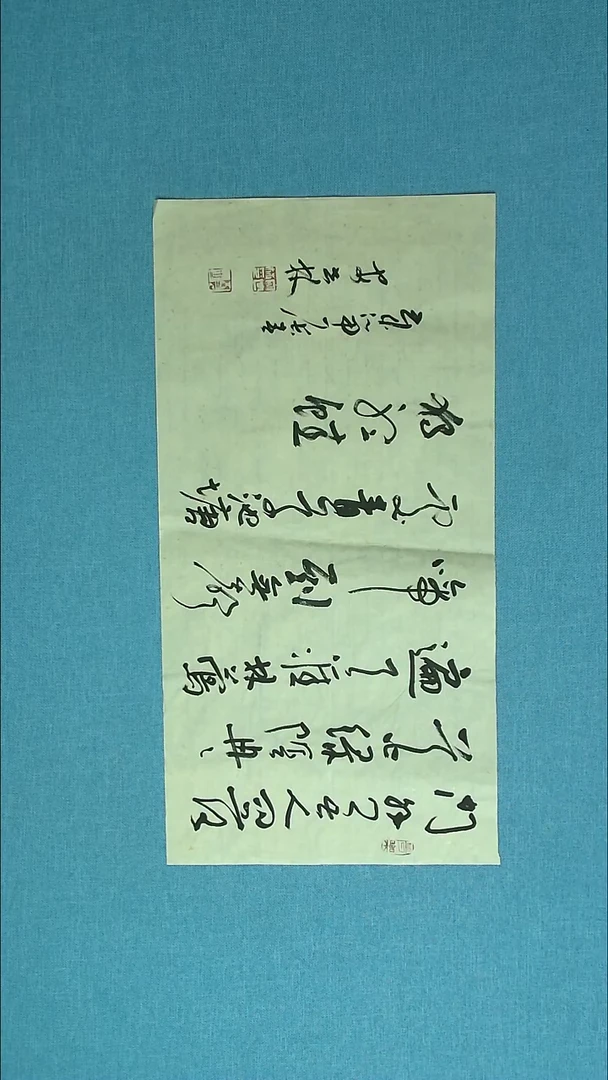 门外无人问落
花绿阴冉冉
遍天涯林莺
啼到无声
处青草池塘
独听蛙